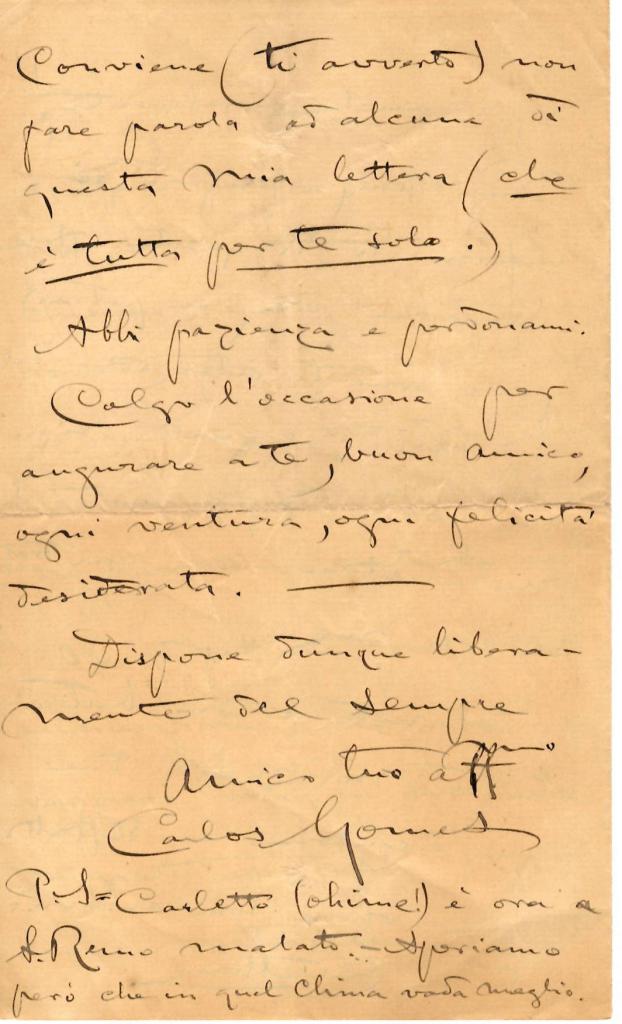 Conviene (ti avverto) non
fare parola ad alcuna di
questa mia lettera (che
è tutta per te solo.)
Abbi pazienza e perdonami.
Colgo l'occasione per
augurare a te, buon amico,
ogni ventura, ogni felicità
desiderata. —
Dispone dunque libera-
mente del sempre
Amico tuo affmo
Carlos Gomes
P.S= Carletto (ohime!) è ora a
S. Remo malato..– Speriamo
però che in quel clima vada meglio.